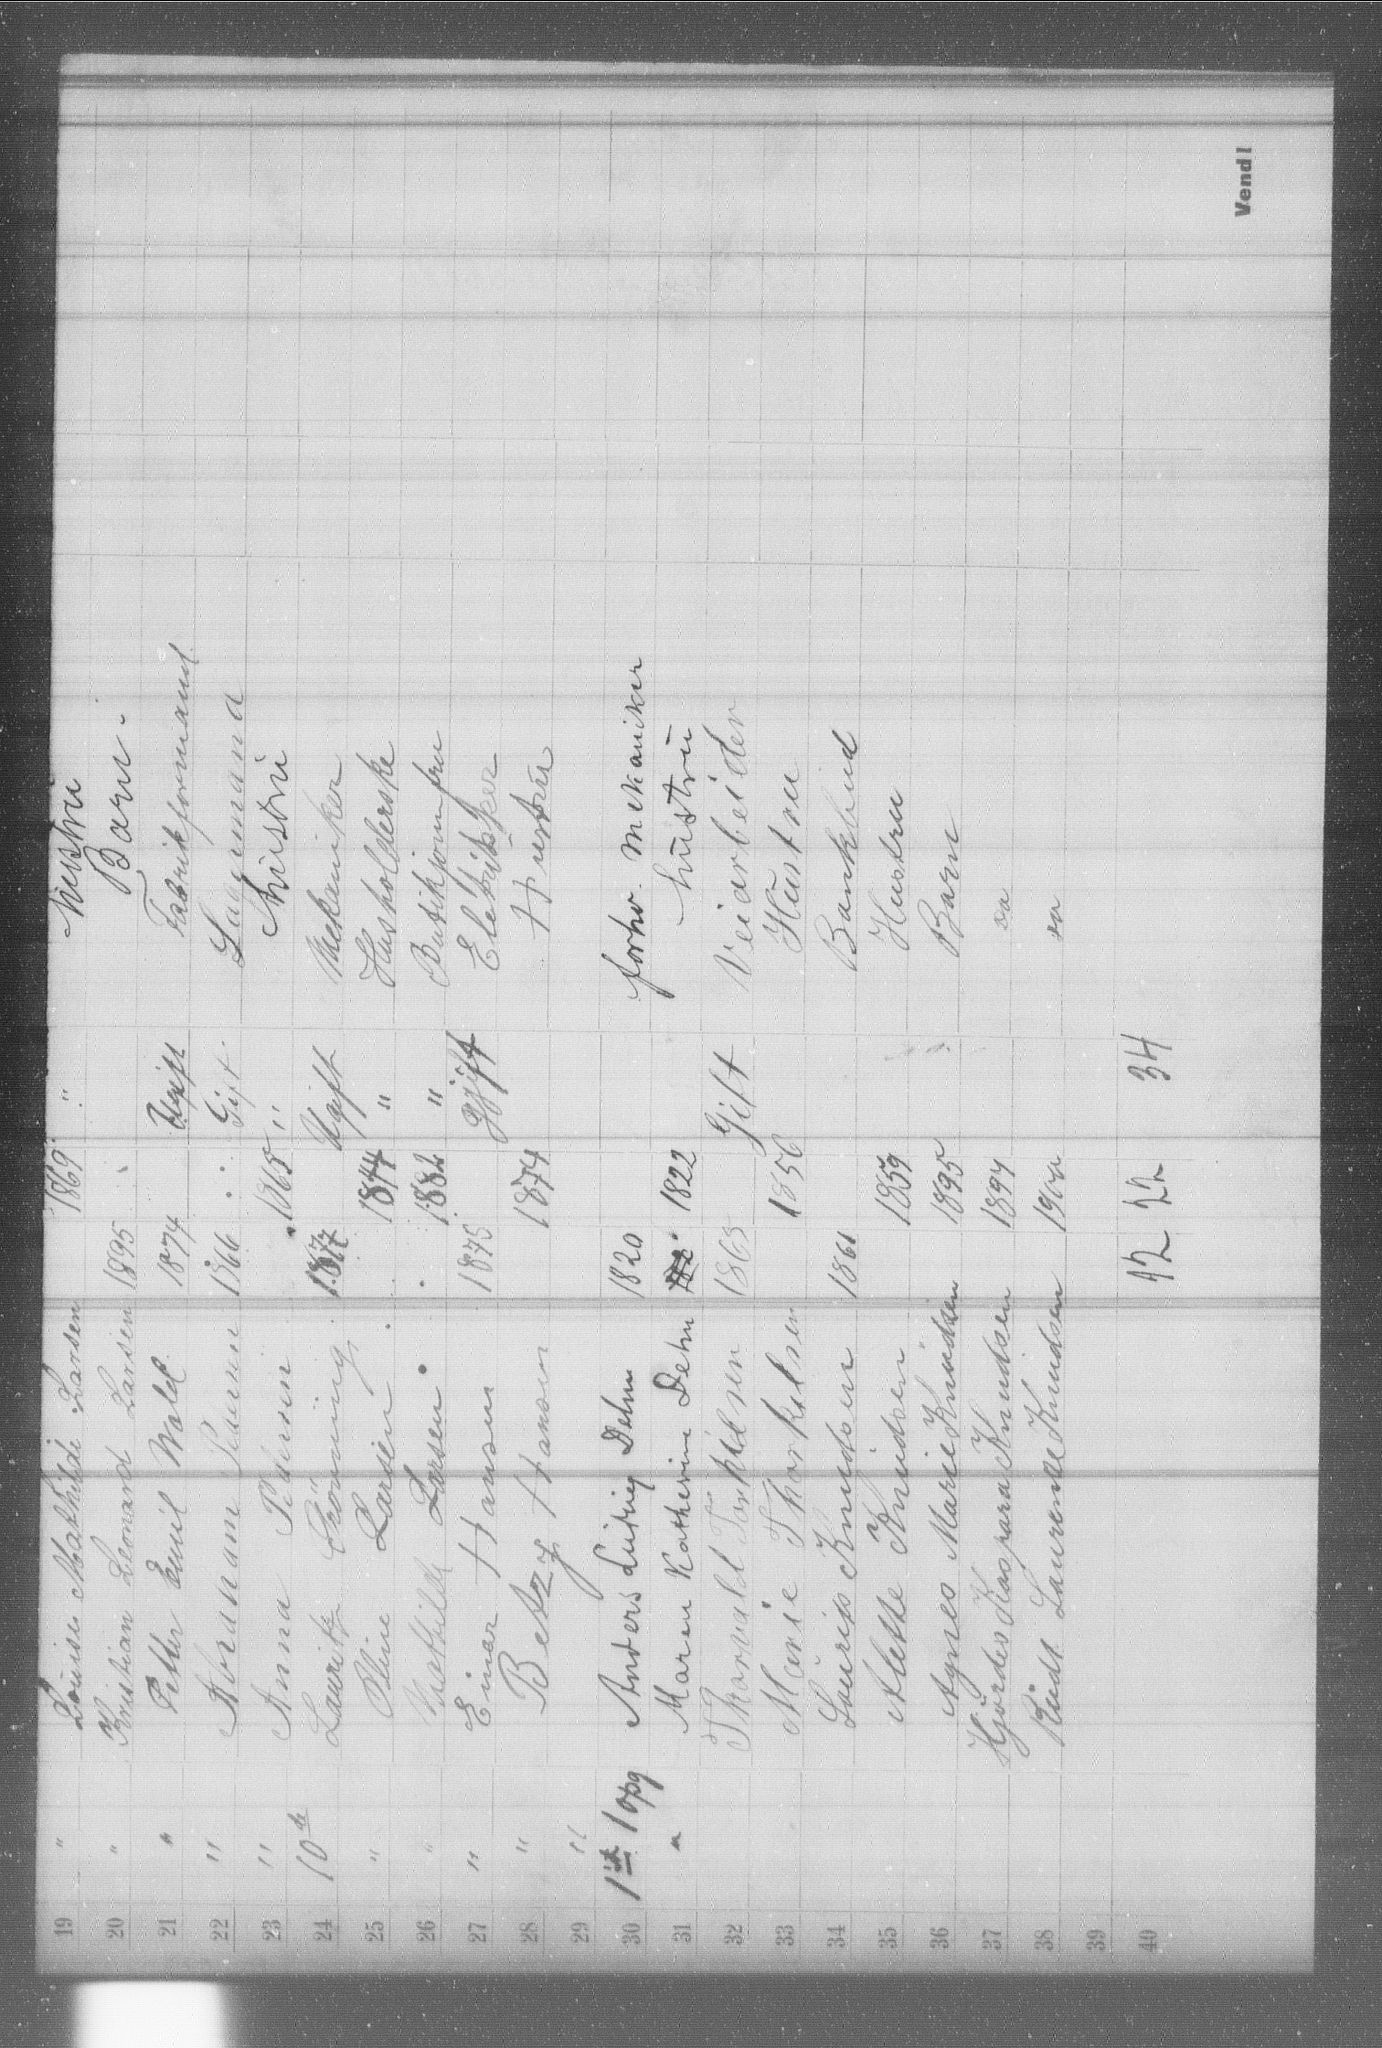 19 " Louise Mathilde Larsen 1869 " Hustru
20 " Kristian Leonard Larsen 1895 Barn
21 " Petter Emil Wold 1874 Ugift Fabrikformand
22 " Abraham Pedersen 1866 Gift Lagermand
23 " Anna Pedersen 1865 " Hustru
24 10de Lauritz 1877 Ugift Mekaniker
25 " Oline Larsen 1844 " Husholderske
26 " Mathilde Larsen 1882 " Butikjomfru
27 " Einar Hansen 1875 Gift Elektriker
28 " Betzy Hansen 1874 Hustru
29 "
30 1ste 1 opg Anders Ludvig Dehn 1820 forhv. mekaniker
31 " Maren Kathrine Dehn 1822 hustru
32 Thorvald Torkildsen 1863 Gift Veiarbeider
33 Marie Thorkelsen 1856 Hustru
34 Lauris Knudsen 1861 Bankbud
35 Alette Knudsen 1859 Hustru
36 Agnes Marie Knudsen 1895 Barn
37 Hjørdis Kaspara Knudsen 1897 da
38 Laurense Knudsen 1900 da
39
40 12 22 34
Vend!